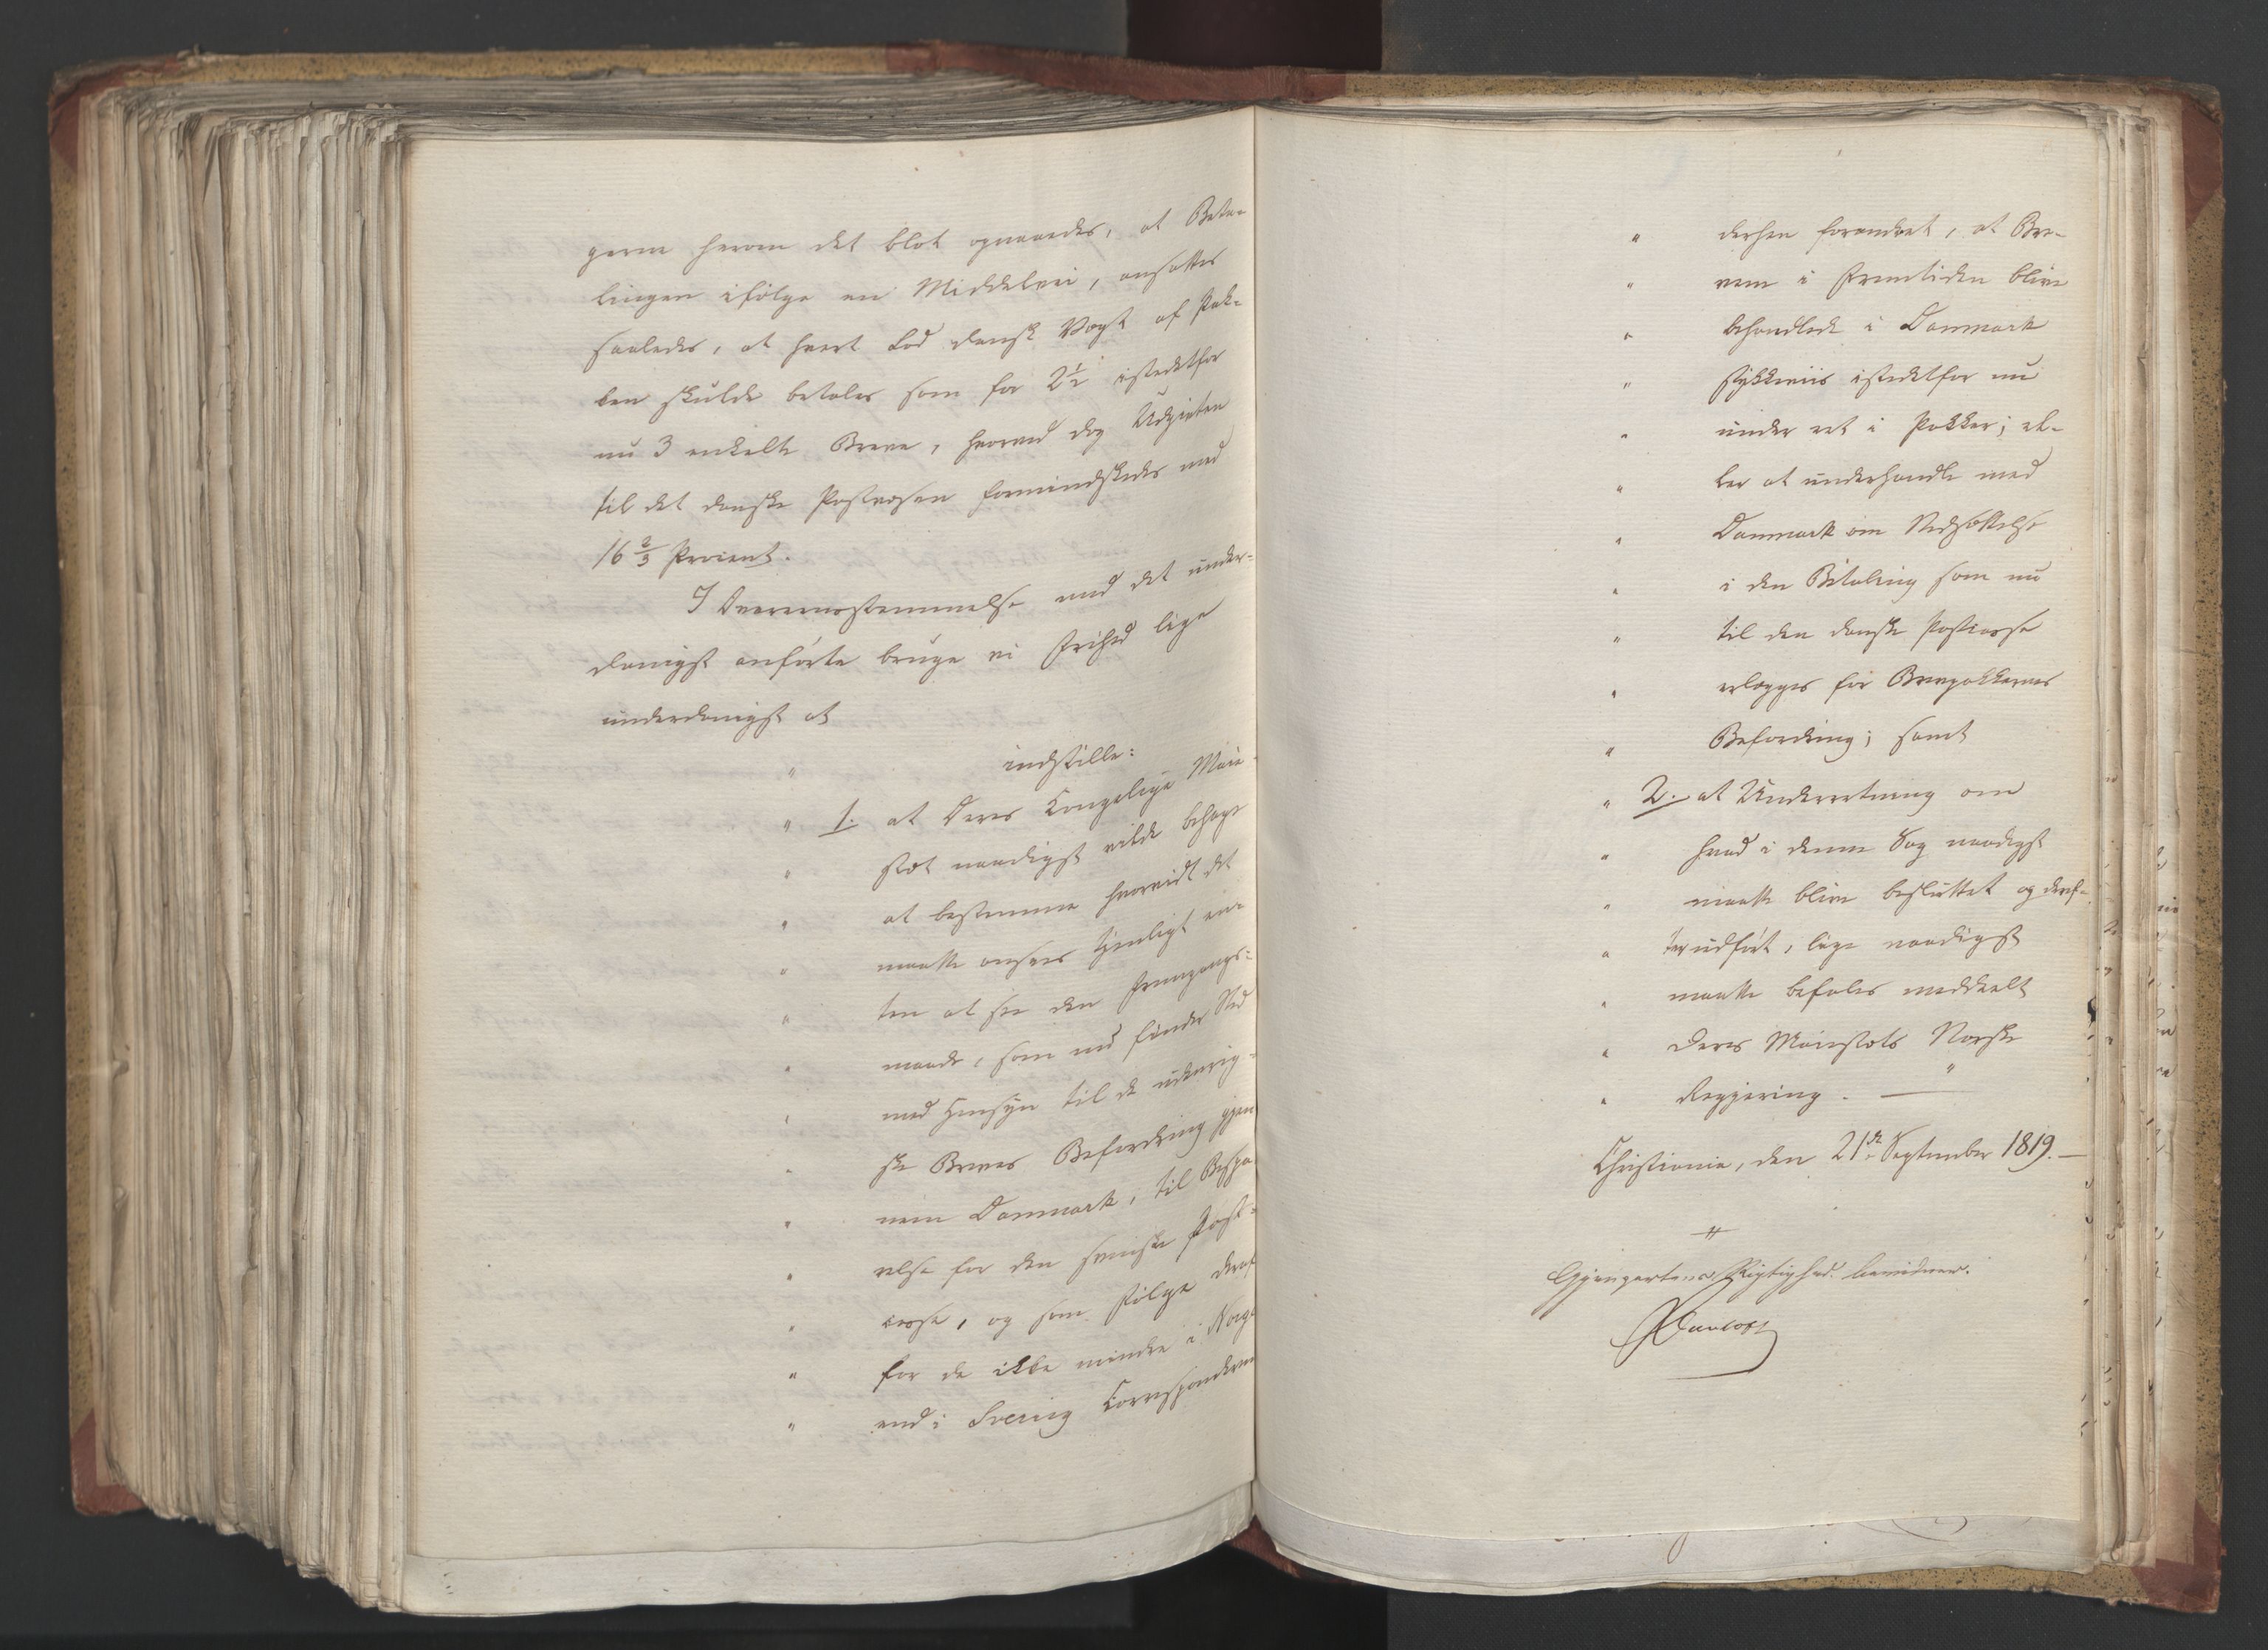 gerne herom det blot opnaaedes, at Beta-
lingen ifölge en Middelvei, ansattes
saaledes, at hvert Lod dansk Vægt af Pak-
ken skulde betales som for 2½ istedetfor
nu 3 enkelte Breve, hvorved dog Udgivten
til det danske Postvæsen formindskedes med
16⅔ Procent.
I Overeensstemmelse med det under-
danigst anförte bruge vi Frihed lige
underdanigst at
" indstille:
" 1. at Deres Kongelige Maje-
" stæt naadigst vilde behage
" at bestemme hvorvidt det
" maatte ansees tjenligt en-
" ten at see den Fremgangs-
" maade, som nu finder Sted
" med Hensyn til de udenrig-
" ske Breves Befordring gjen-
" nem Danmark, til Bespa-
" relse for den svenske Post-
" casse, og som Fölge deraf
" for de ikke mindre i Norge
" end i Sverrig Corresponderende
" derhen forandret, at Bre-
" vene i Fremtiden blive
" behandlede i Danmark
" stykkeviis istedetfor nu
" under eet i Pakker; el-
" ler at underhandle med
" Danmark om Nedsættelse
" i den Betaling som nu
" til den danske Postcasse
" erlægges for Brevpakkernes
" Befordring; samt
" 2. at Underretning om
" hvad i denne Sag naadigst
" maatte blive besluttet og deref-
" ter udfört, lige naadigst
" maatte befales meddeelt
" Deres Majestæts Norske
" Regjering. — "
Christiania, den 21de September 1819. —
Gjenpartens Rigtighed bevidner.